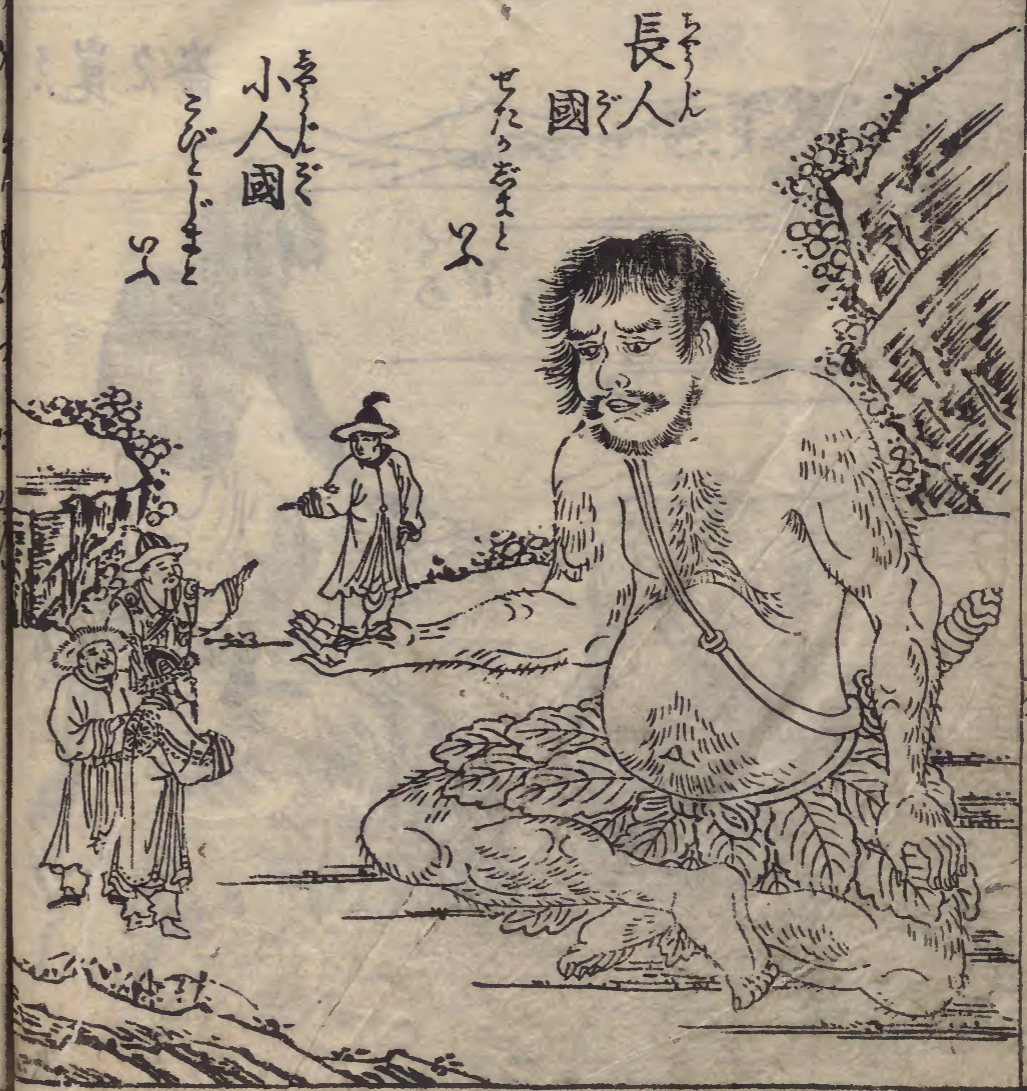 長人
ちやうじん
國
ごく
せたかじまと
いふ
小人國
しやうじんごく
こびとじまと
いふ